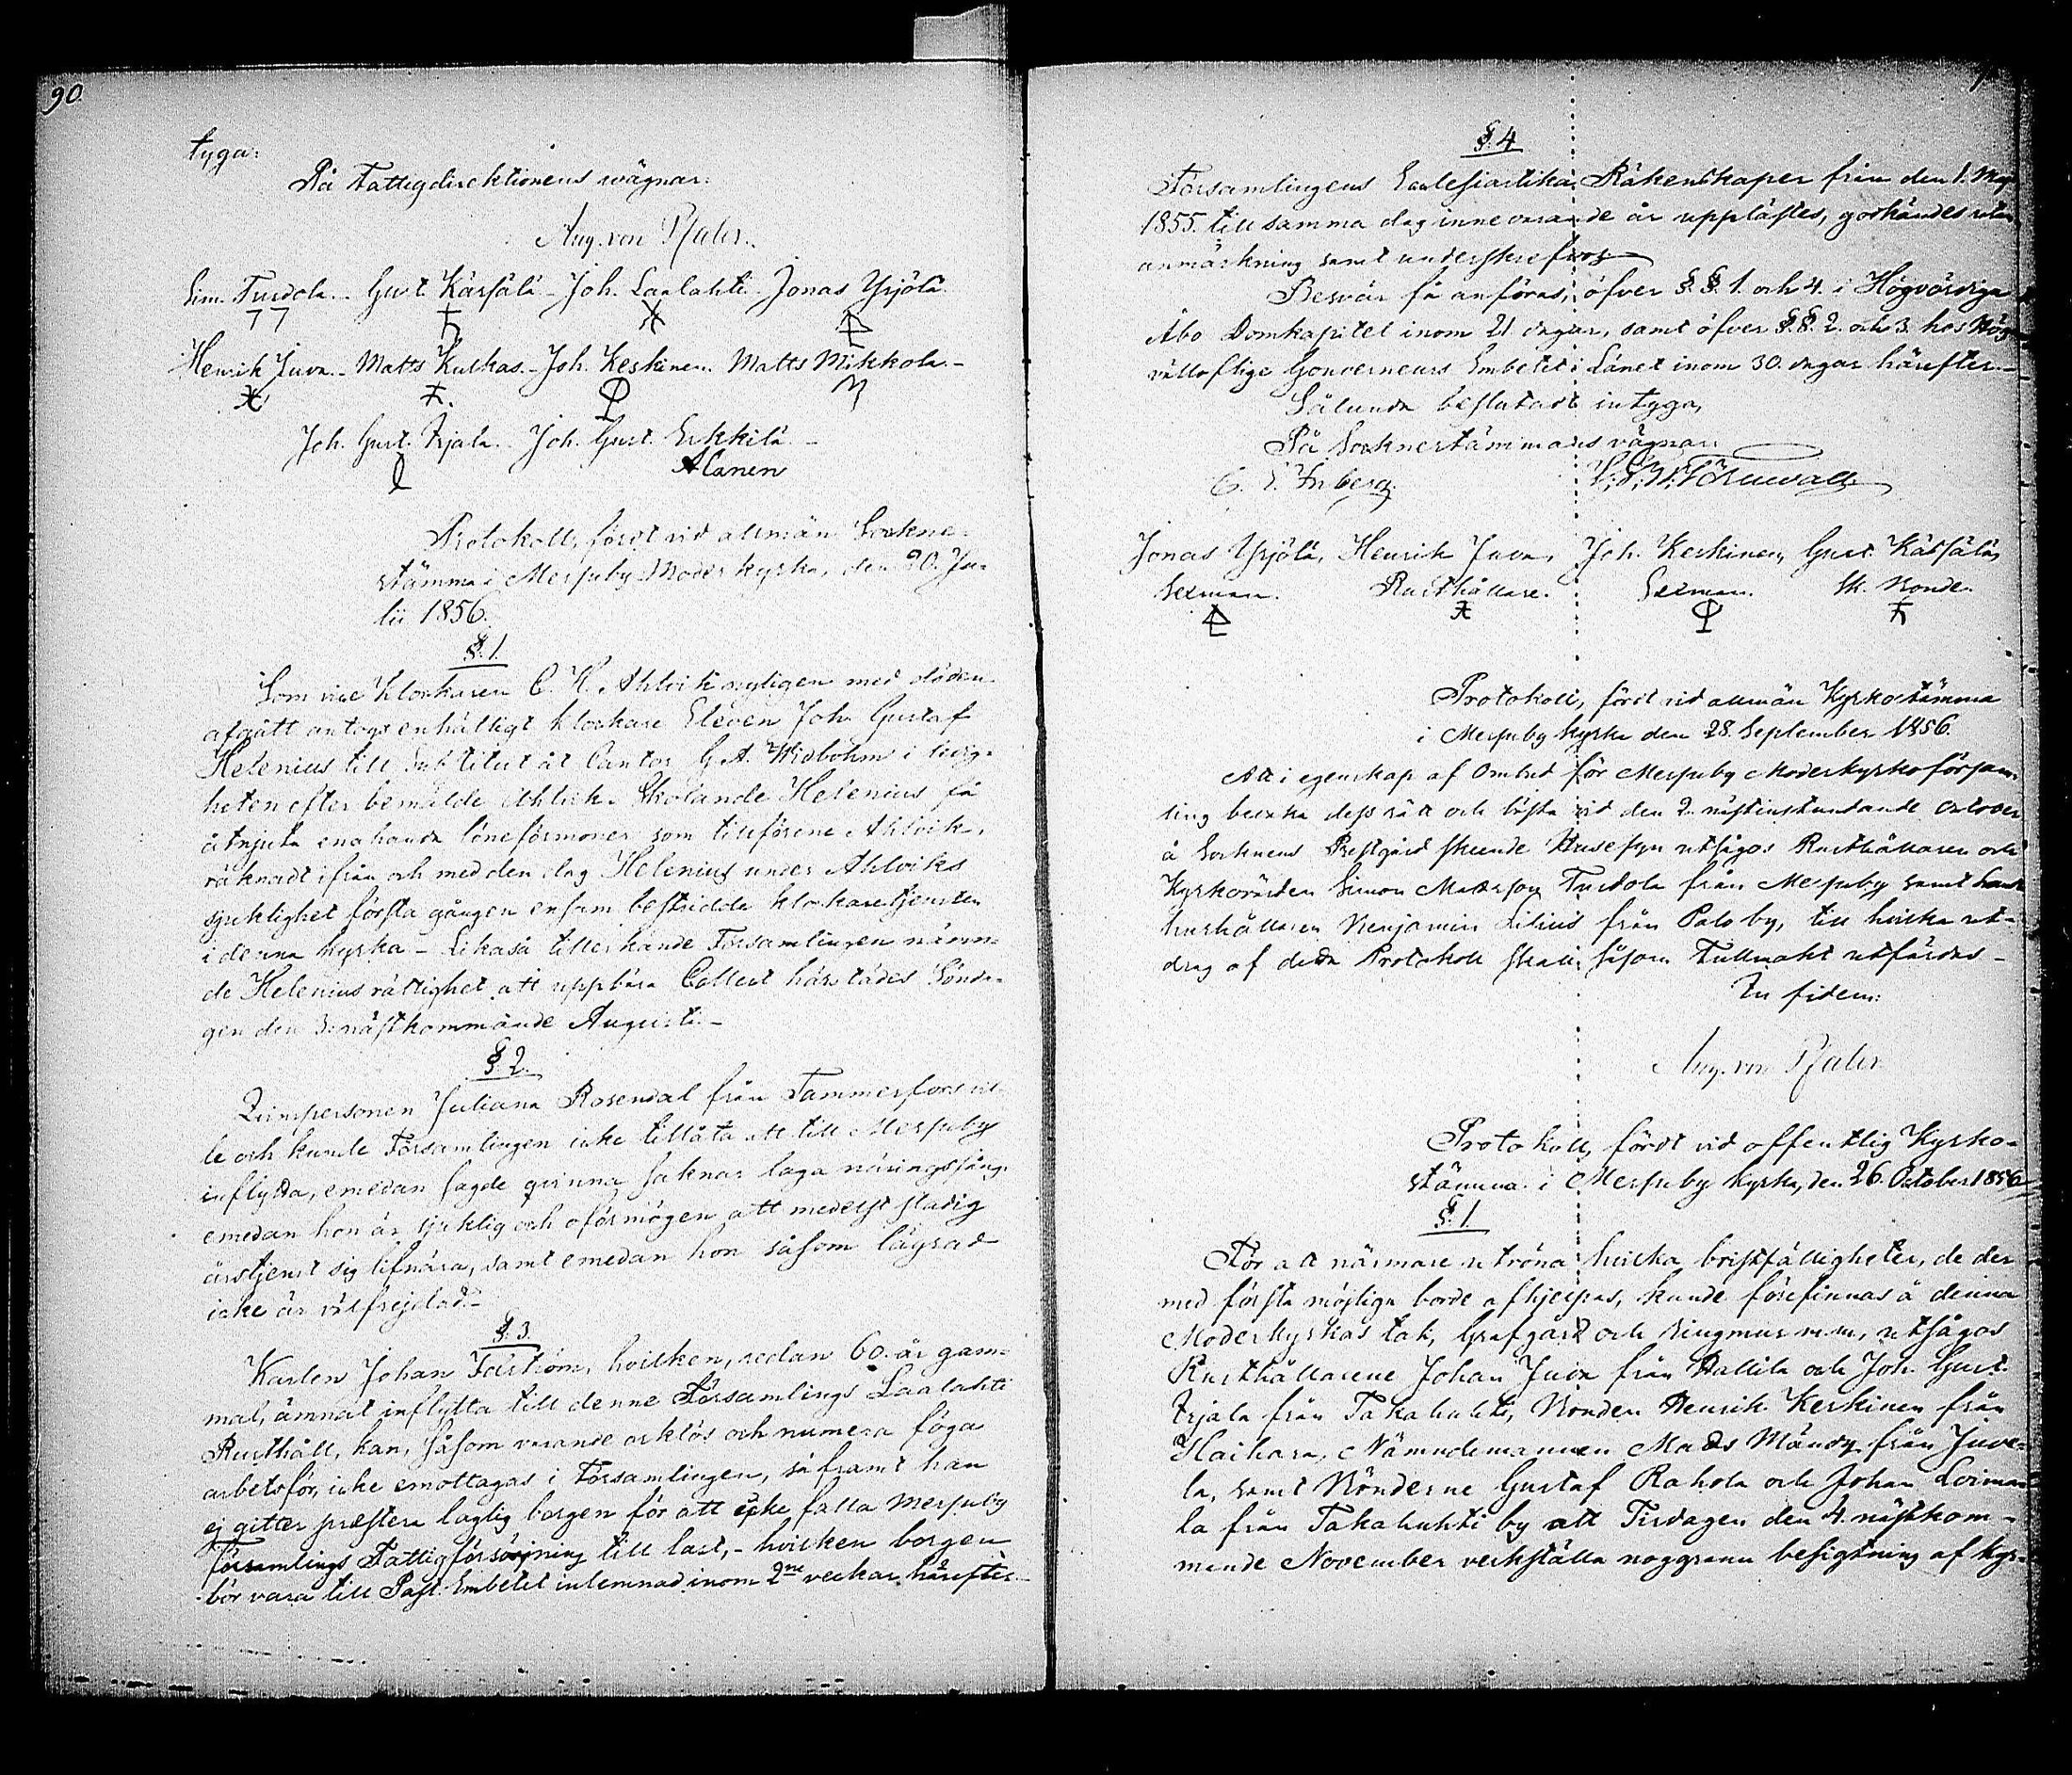 90.
tyga:
På Fattigdirektionens wägnar:
Aug. von Pfaler.
Sim. Turdola. Gust. Kärsälä. Joh. Laalahti. Jonas Yrjölä.
Henrik Juva. Matts Kulkas. Joh. Keskinen. Matts Mikkola.
Joh. Gust. Irjala. Joh. Gust. Erkkilä.
Alanen
Protokoll, fördt vid allmän Sockne-
stämma i Messuby Moderkyrka, den 20. Ju-
lii 1856.
§. 1.
Som vice Klockaren C. H. Ahlvik nyligen med döden
afgått antogs enhälligt klockare Eleven Joh. Gustaf
Helenius till Subtitut åt Cantor G. A. Widbohm i ledig-
heten efter bemälde Ahlvik. Skolande Helenius få
åtnjuta enahanda löneförmoner som tillförene Ahlvik,
räknadt ifrån och med den dag Helenius under Ahlviks
sjuklighet första gången ensam bestridde klockaretjensten
i denna kyrka – Likaså tillerkände Församlingen nämn-
de Helenius rättighet att uppbära Collect härstädes Sönda-
gen den 3. nästkommande Augusti. –
§. 2.
Qvinspersonen Juliana Rosendal från Tammerfors vil-
le och kunde Församlingen icke tillåta att till Messuby
inflytta, emedan sagde qvinna saknar laga näringsfång,
emedan hon är sjuklig och oförmögen att medelst stadig
årstjenst sig lifnära, samt emedan hon såsom lägrad
icke är välfrejdad. –
§. 3.
Karlen Johan Forström, hvilken, redan 60. år gam-
mal, ämnat inflytta till denne Församlings Laalahti
Rusthåll, kan, såsom varande orklös och numera föga
arbetsför, icke emottagas i Församlingen, såframt han
ej gitter præstera laglig borgen för att icke falla Messuby
församlings Fattigförsörjning till last, – hvilken borgen
bör vara till Past. Embetet inlemnad inom 2ne veckor härefter. –
§. 4
Församlingens Ecclesiastika Räkenskaper från den 1. Maj
1855. till samma dag innevarande år upplästes, godkändes utan
anmärkning samt underskrefvos
Besvär få anföras, öfver §. §. 1. och 4. i Högvördiga
Åbo Domkapitel inom 21. dagar, samt öfver §. §. 2. och 3. hos Hög-
välloflige Gouverneurs Embetet i Länet inom 30. dagar härefter. –
Sålunda beslutadt intyga,
På Socknestämmans vägnar:
C. E. Inberg.
Jonas Yrjölä, Henrik Juva, Joh. Keskinen, Gust. Kärsälä,
Sexman. Rusthållare. Sexman. Sk. Bonde.
Protokoll, fördt vid allmän Kyrkostämma
i Messuby kyrka den 28. September 1856.
Att i egenskap af Ombud för Messuby Moderkyrkoförsam-
ling bevaka dess rätt och bästa vid den 2. nästinstundande October
å Socknens Prestgård skeende Husesyn utsågos Rusthållaren och
Kyrkovärden Simon Mattsson Turdola från Messuby samt
hushållaren Benjamin Lilius från Palo by, till hvilka ut-
drag af detta Protokoll skall såsom Fullmakt utfärdas –
In fidem:
Aug. von Pfaler
Protokoll, fördt vid offentlig Kyrko-
stämma i Messuby kyrka, den 26. October 1856.
§. 1.
För att närmare utröna hvilka bristfälligheter, de der
med första möjliga borde afhjelpas, kunde förefinnas å denna
Moderkyrkas tak, Grafgård och Ringmur m. m., utsågos
Rusthållarene Johan Juva från Hallila och Joh. Gust.
Irjala från Takahuhti, Bonden Henrik Keskinen från
Haihara, Nämndemannen Matts Mändy från Juve-
la, samt Bönderne Gustaf Rahola och Johan Lorima-
la från Takahuhti by att Tisdagen den 4. nästkom-
mande November verkställa noggrann besigtning af Kyr-